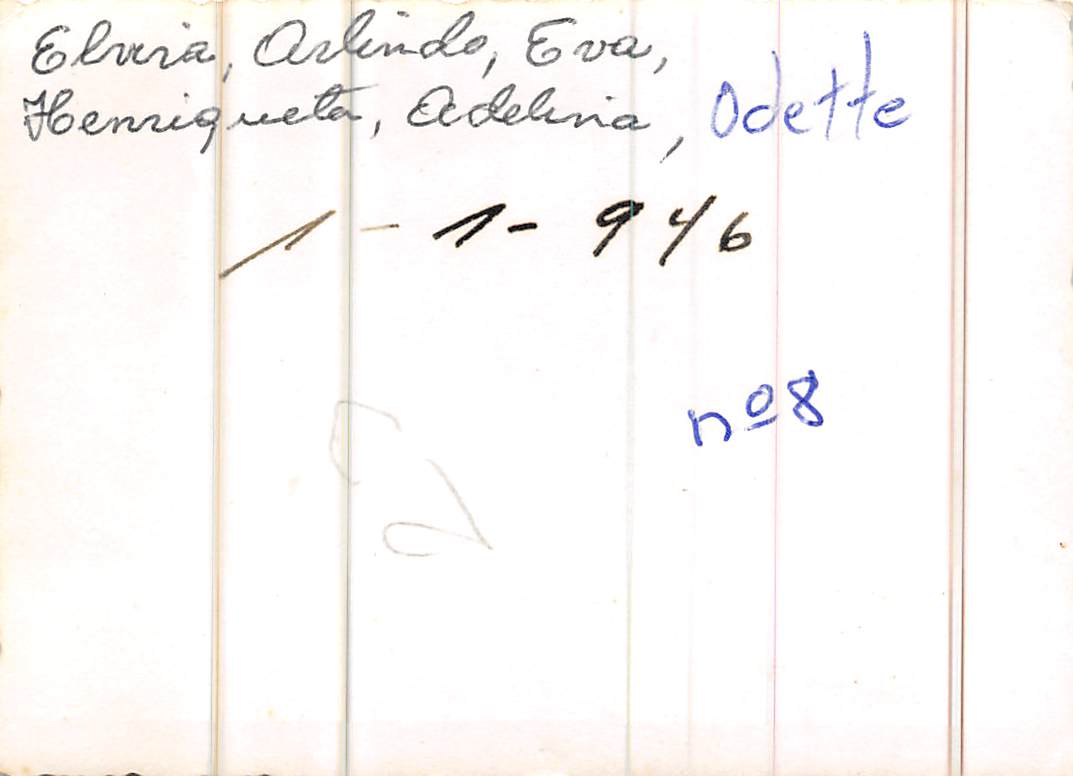 Elvira, Arlindo, Eva,
Henriqueta, Adelina, Odette
1-1-946
nº8